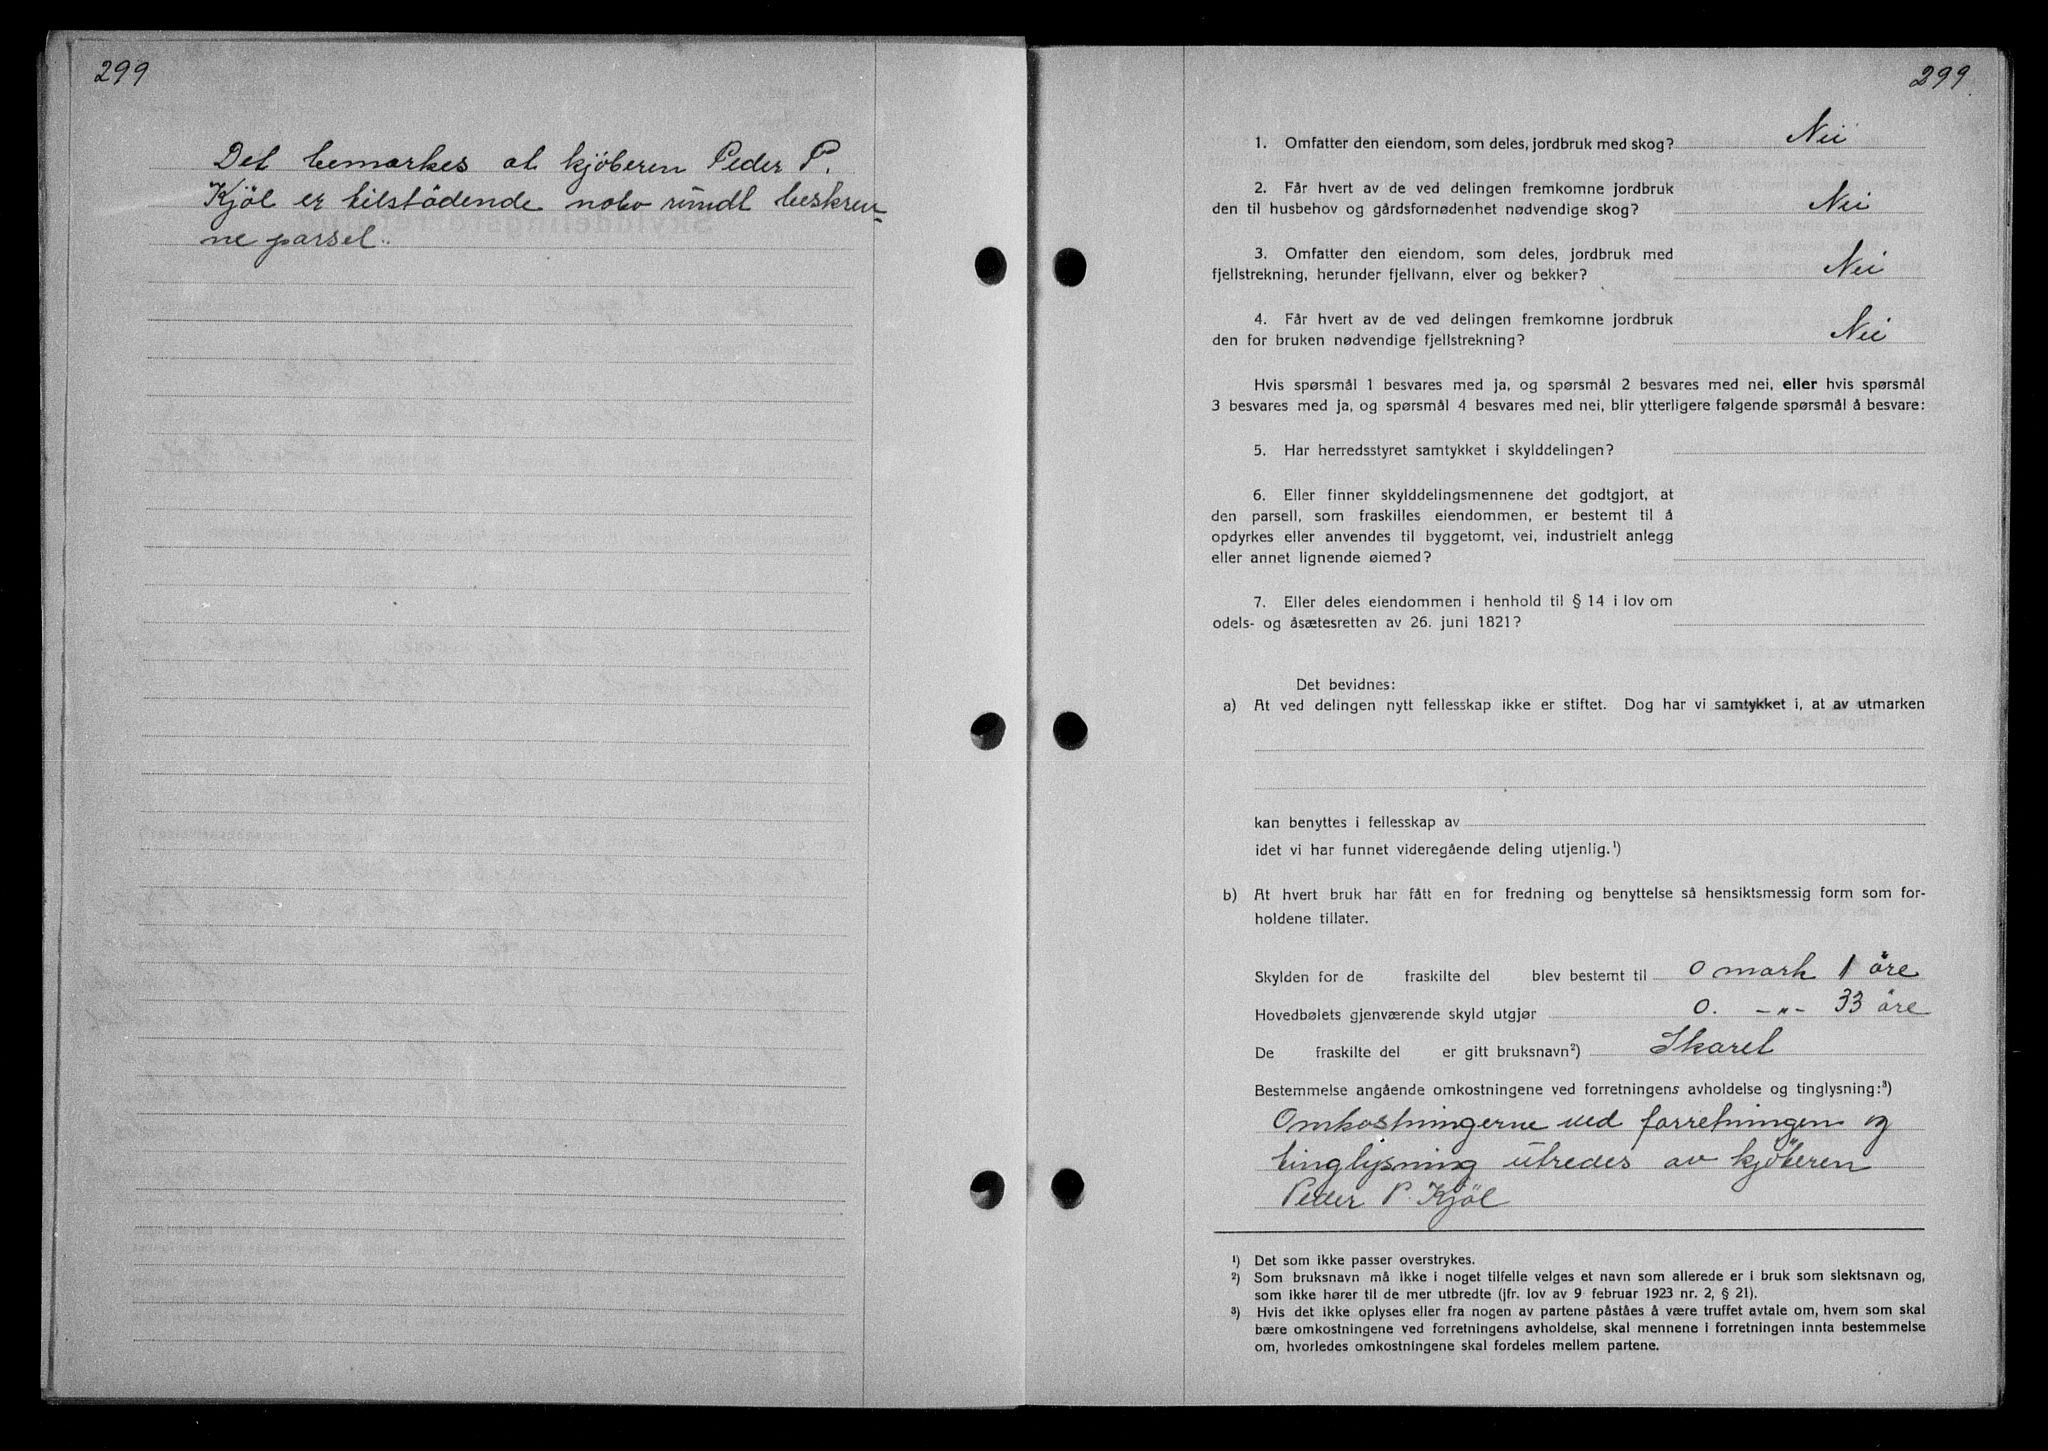 299
Det bemærkes at kjöberen Peder P.
Kjöl er tilstödende nabo rundt beskrev-
ne parsel.
299.
1. Omfatter den eiendom, som deles, jordbruk med skog? Nei
2. Får hvert av de ved delingen fremkomne jordbruk
den til husbehov og gårdsfornødenhet nødvendige skog? Nei
3. Omfatter den eiendom, som deles, jordbruk med
fjellstrekning, herunder fjellvann, elver og bekker? Nei
4. Får hvert av de ved delingen fremkomne jordbruk
den for bruken nødvendige fjellstrekning? Nei
Hvis spørsmål 1 besvares med ja, og spørsmål 2 besvares med nei, eller hvis spørsmål
3 besvares med ja, og spørsmål 4 besvares med nei, blir ytterligere følgende spørsmål å besvare:
5. Har herredsstyret samtykket i skylddelingen?
6. Eller finner skylddelingsmennene det godtgjort, at
den parsell, som fraskilles eiendommen, er bestemt til å
opdyrkes eller anvendes til byggetomt, vei, industrielt anlegg
eller annet lignende øiemed?
7. Eller deles eiendommen i henhold til § 14 i lov om
odels- og åsætesretten av 26. juni 1821?
Det bevidnes:
a) At ved delingen nytt fellesskap ikke er stiftet. Dog har vi samtykket i, at av utmarken
kan benyttes i fellesskap av
idet vi har funnet videregående deling utjenlig.¹)
b) At hvert bruk har fått en for fredning og benyttelse så hensiktsmessig form som for-
holdene tillater.
Skylden for de fraskilte del blev bestemt til 0 mark 1 öre
Hovedbølets gjenværende skyld utgjør 0. -"- 33 öre
De fraskilte del er gitt bruksnavn²) Skaret
Bestemmelse angående omkostningene ved forretningens avholdelse og tinglysning:³)
Omkostningerne ved forretningen og
tinglysning utredes av kjöberen
Peder P. Kjöl
¹) Det som ikke passer overstrykes.
²) Som bruksnavn må ikke i noget tilfelle velges et navn som allerede er i bruk som slektsnavn og,
som ikke hører til de mer utbredte (jfr. lov av 9 februar 1923 nr. 2, § 21).
³) Hvis det ikke oplyses eller fra nogen av partene påståes å være truffet avtale om, hvem som skal
bære omkostningene ved forretningens avholdelse, skal mennene i forretningen innta bestemmelse
om, hvorledes omkostningene skal fordeles mellem partene.